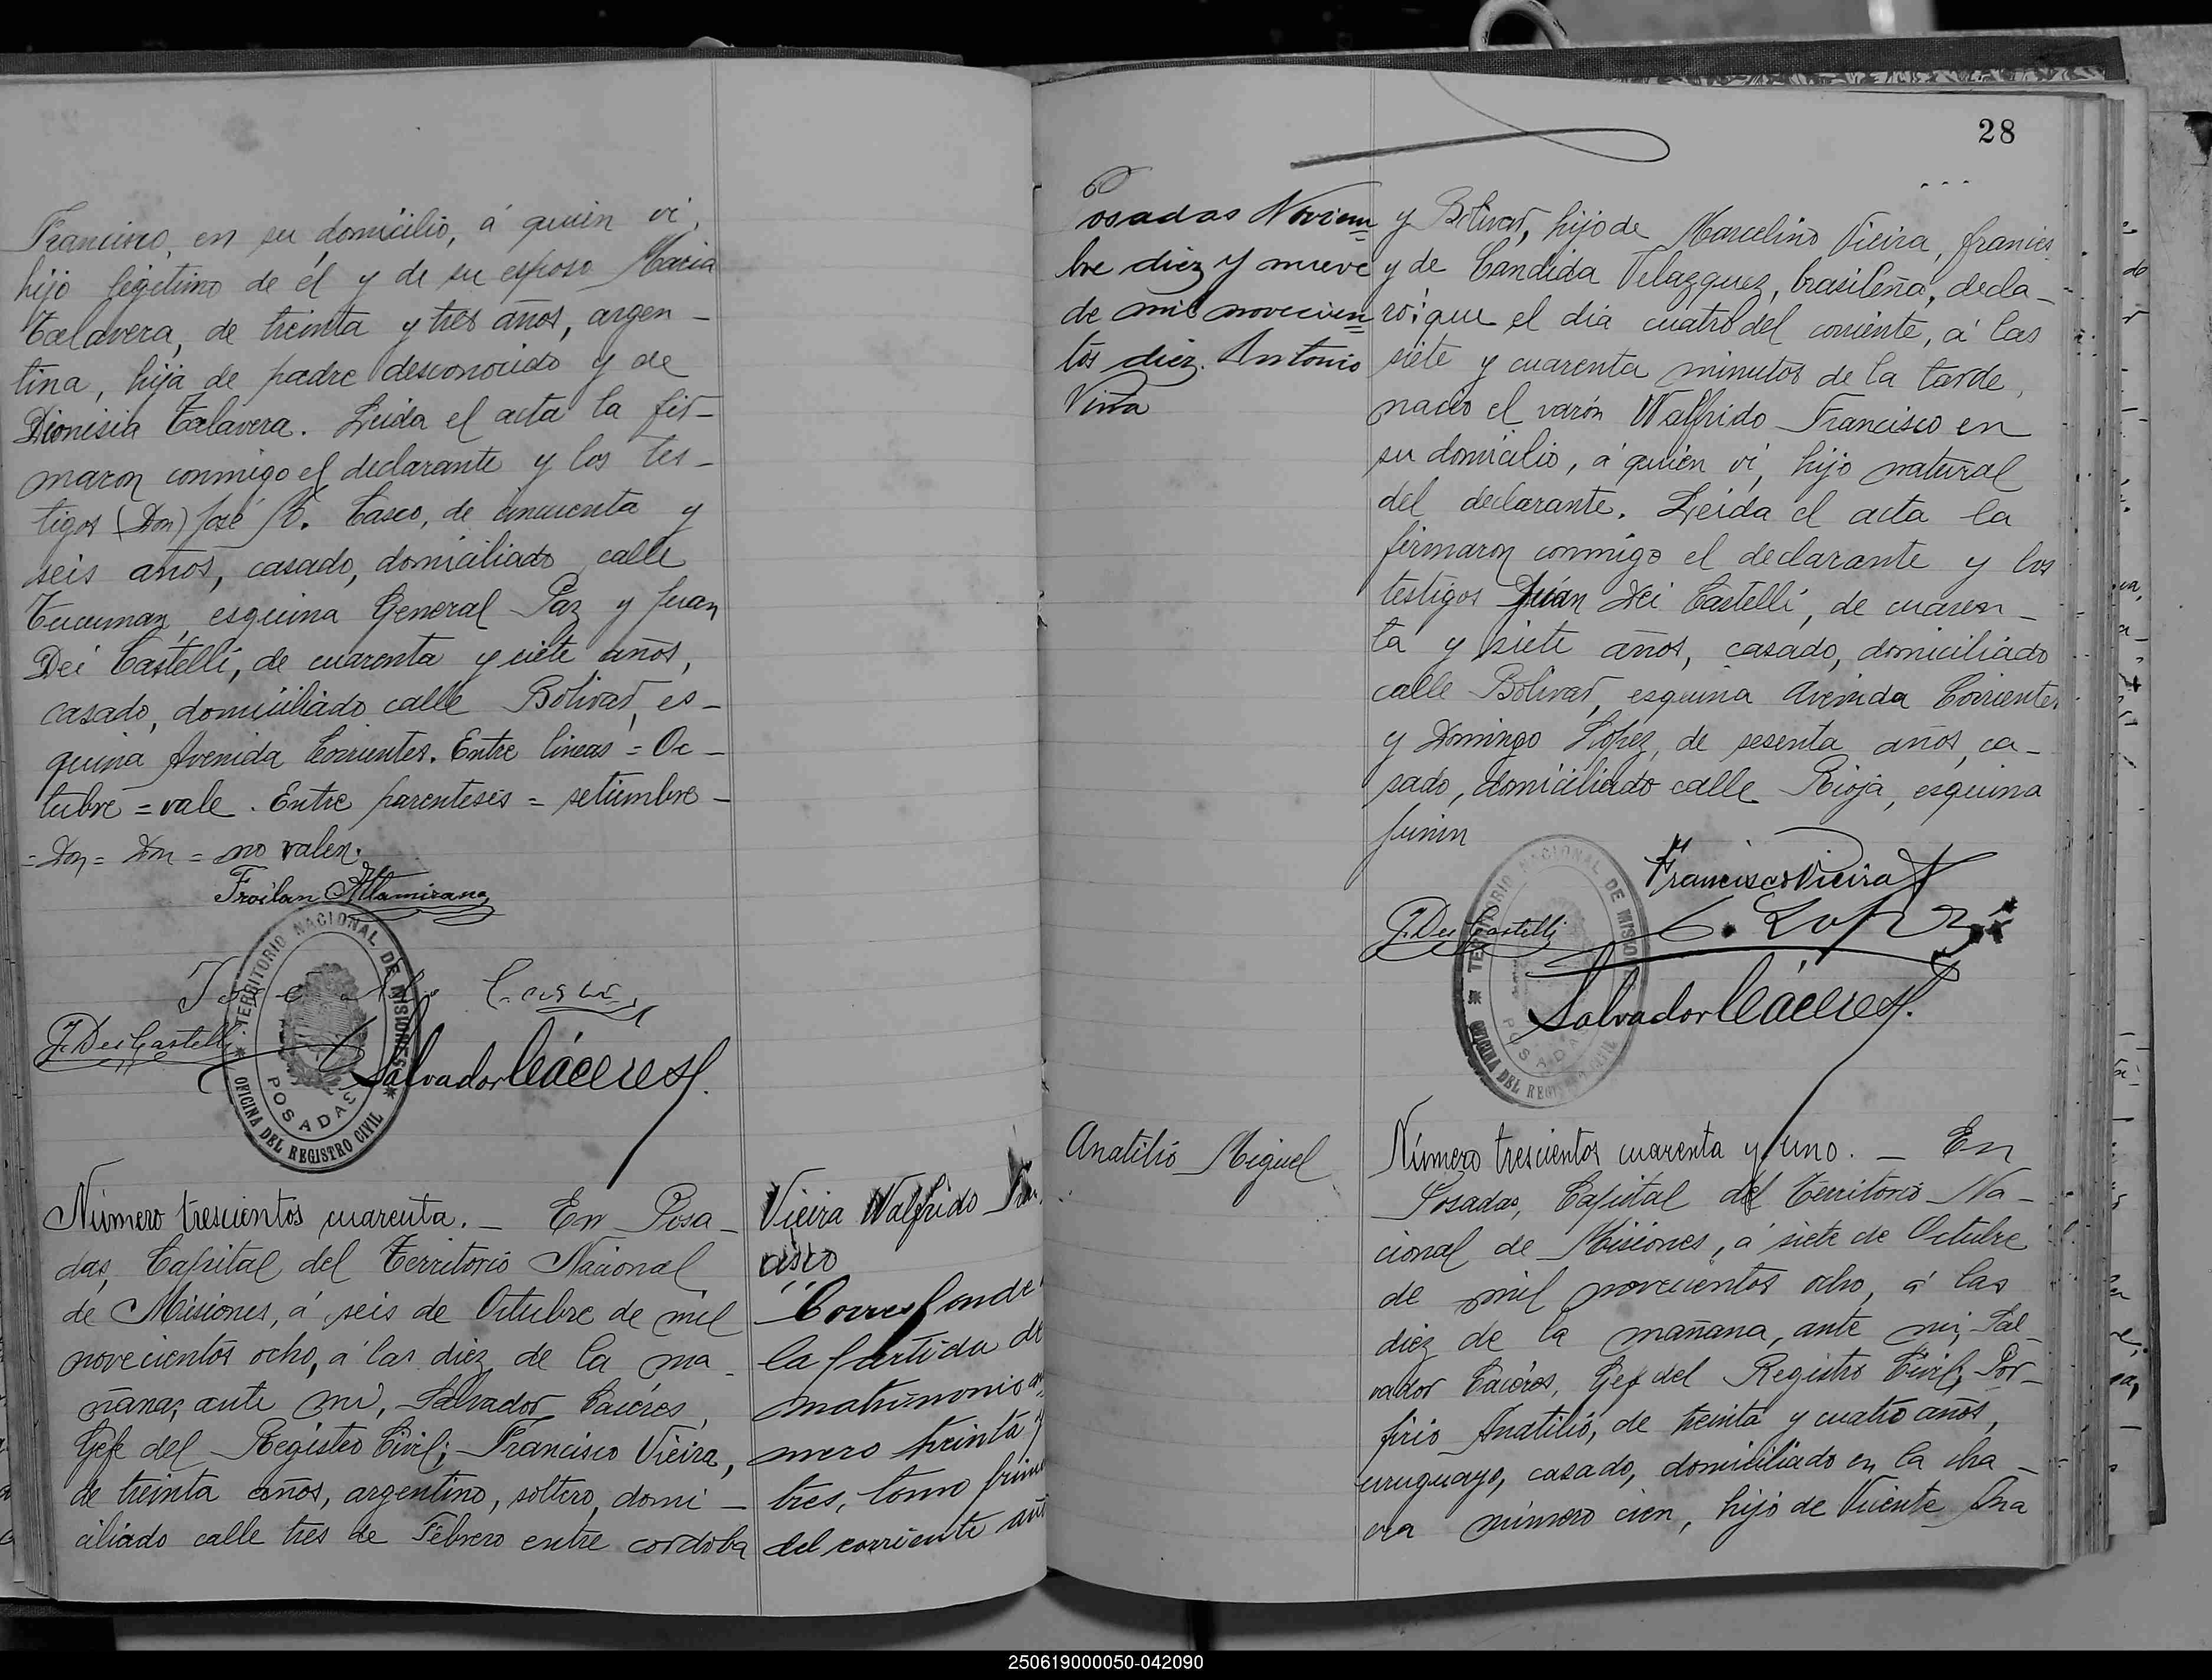 Francisco, en su domicilio, á quien vi,
hijo legitimo de él y de su esposa Maria
Talavera, de treinta y tres años, argen-
tina, hija de padre desconocido y de
Dionisia Talavera. Leida el acta la fir-
maron conmigo el declarante y los tes-
tigos (Don) José R. Casco, de cincuenta y
seis años, casado, domiciliado calle
Tucuman, esquina General Paz y Juan
Dei Castelli, de cuarenta y siete años,
casado, domiciliado calle Bolivar, es-
quina Avenida Corrientes. Entre lineas = Oc-
tubre = vale. Entre parentesis = setiembre -
= Don = Don = no valen.
Froilan Altamirano
J. Dei Castelli
Salvador Cáceres
TERRITORIO NACIONAL DE MISIONES
OFICINA DEL REGISTRO CIVIL
POSADAS
Número trescientos cuarenta. - En Posa-
das, Capital del Territorio Nacional
de Misiones, á seis de Octubre de mil
novecientos ocho, á las diez de la ma-
ñana, ante mi, Salvador Cáceres,
Gefe del Registro Civil; Francisco Vieira,
de treinta años, argentino, soltero, domi-
ciliado calle tres de Febrero entre cordoba
Vieira Walfrido Fran
cisco
Corresponde
la partida de
matrimonio nú
mero treinta y
tres, tomo prime
del corriente añ
28
Posadas Noviem
bre diez y nueve
de mil novecien
tos diez. Antonio
Viña
y Bolivar, hijo de Marcelino Vieira, frances
y de Candida Velazquez, brasileña, decla-
ró: que el dia cuatro del corriente, á las
siete y cuarenta minutos de la tarde,
nacio el varón Walfrido Francisco en
su domicilio, á quien vi, hijo natural
del declarante. Leida el acta la
firmaron conmigo el declarante y los
testigos Juán Dei Castelli, de cuaren-
ta y siete años, casado, domiciliado
calle Bolivar, esquina Avenida Corrientes
y Domingo López, de sesenta años, ca-
sado, domiciliado calle Rioja, esquina
Junin
Francisco Vieira
J. Dei Castelli
Salvador Cáceres
TERRITORIO NACIONAL DE MISIONES
OFICINA DEL REGISTRO CIVIL
POSADAS
Anatilió Miguel
Número trescientos cuarenta y uno. - En
Posadas, Capital del Territorio Na-
cional de Misiones, á siete de Octubre
de mil novecientos ocho, á las
diez de la mañana, ante mi, Sal-
vador Cáceres, Gefe del Registro Civil; Por-
firio Anatilió, de treinta y cuatro años,
uruguayo, casado, domiciliado en la cha-
cra número cien, hijo de Vicente Ana
250619000050-042090